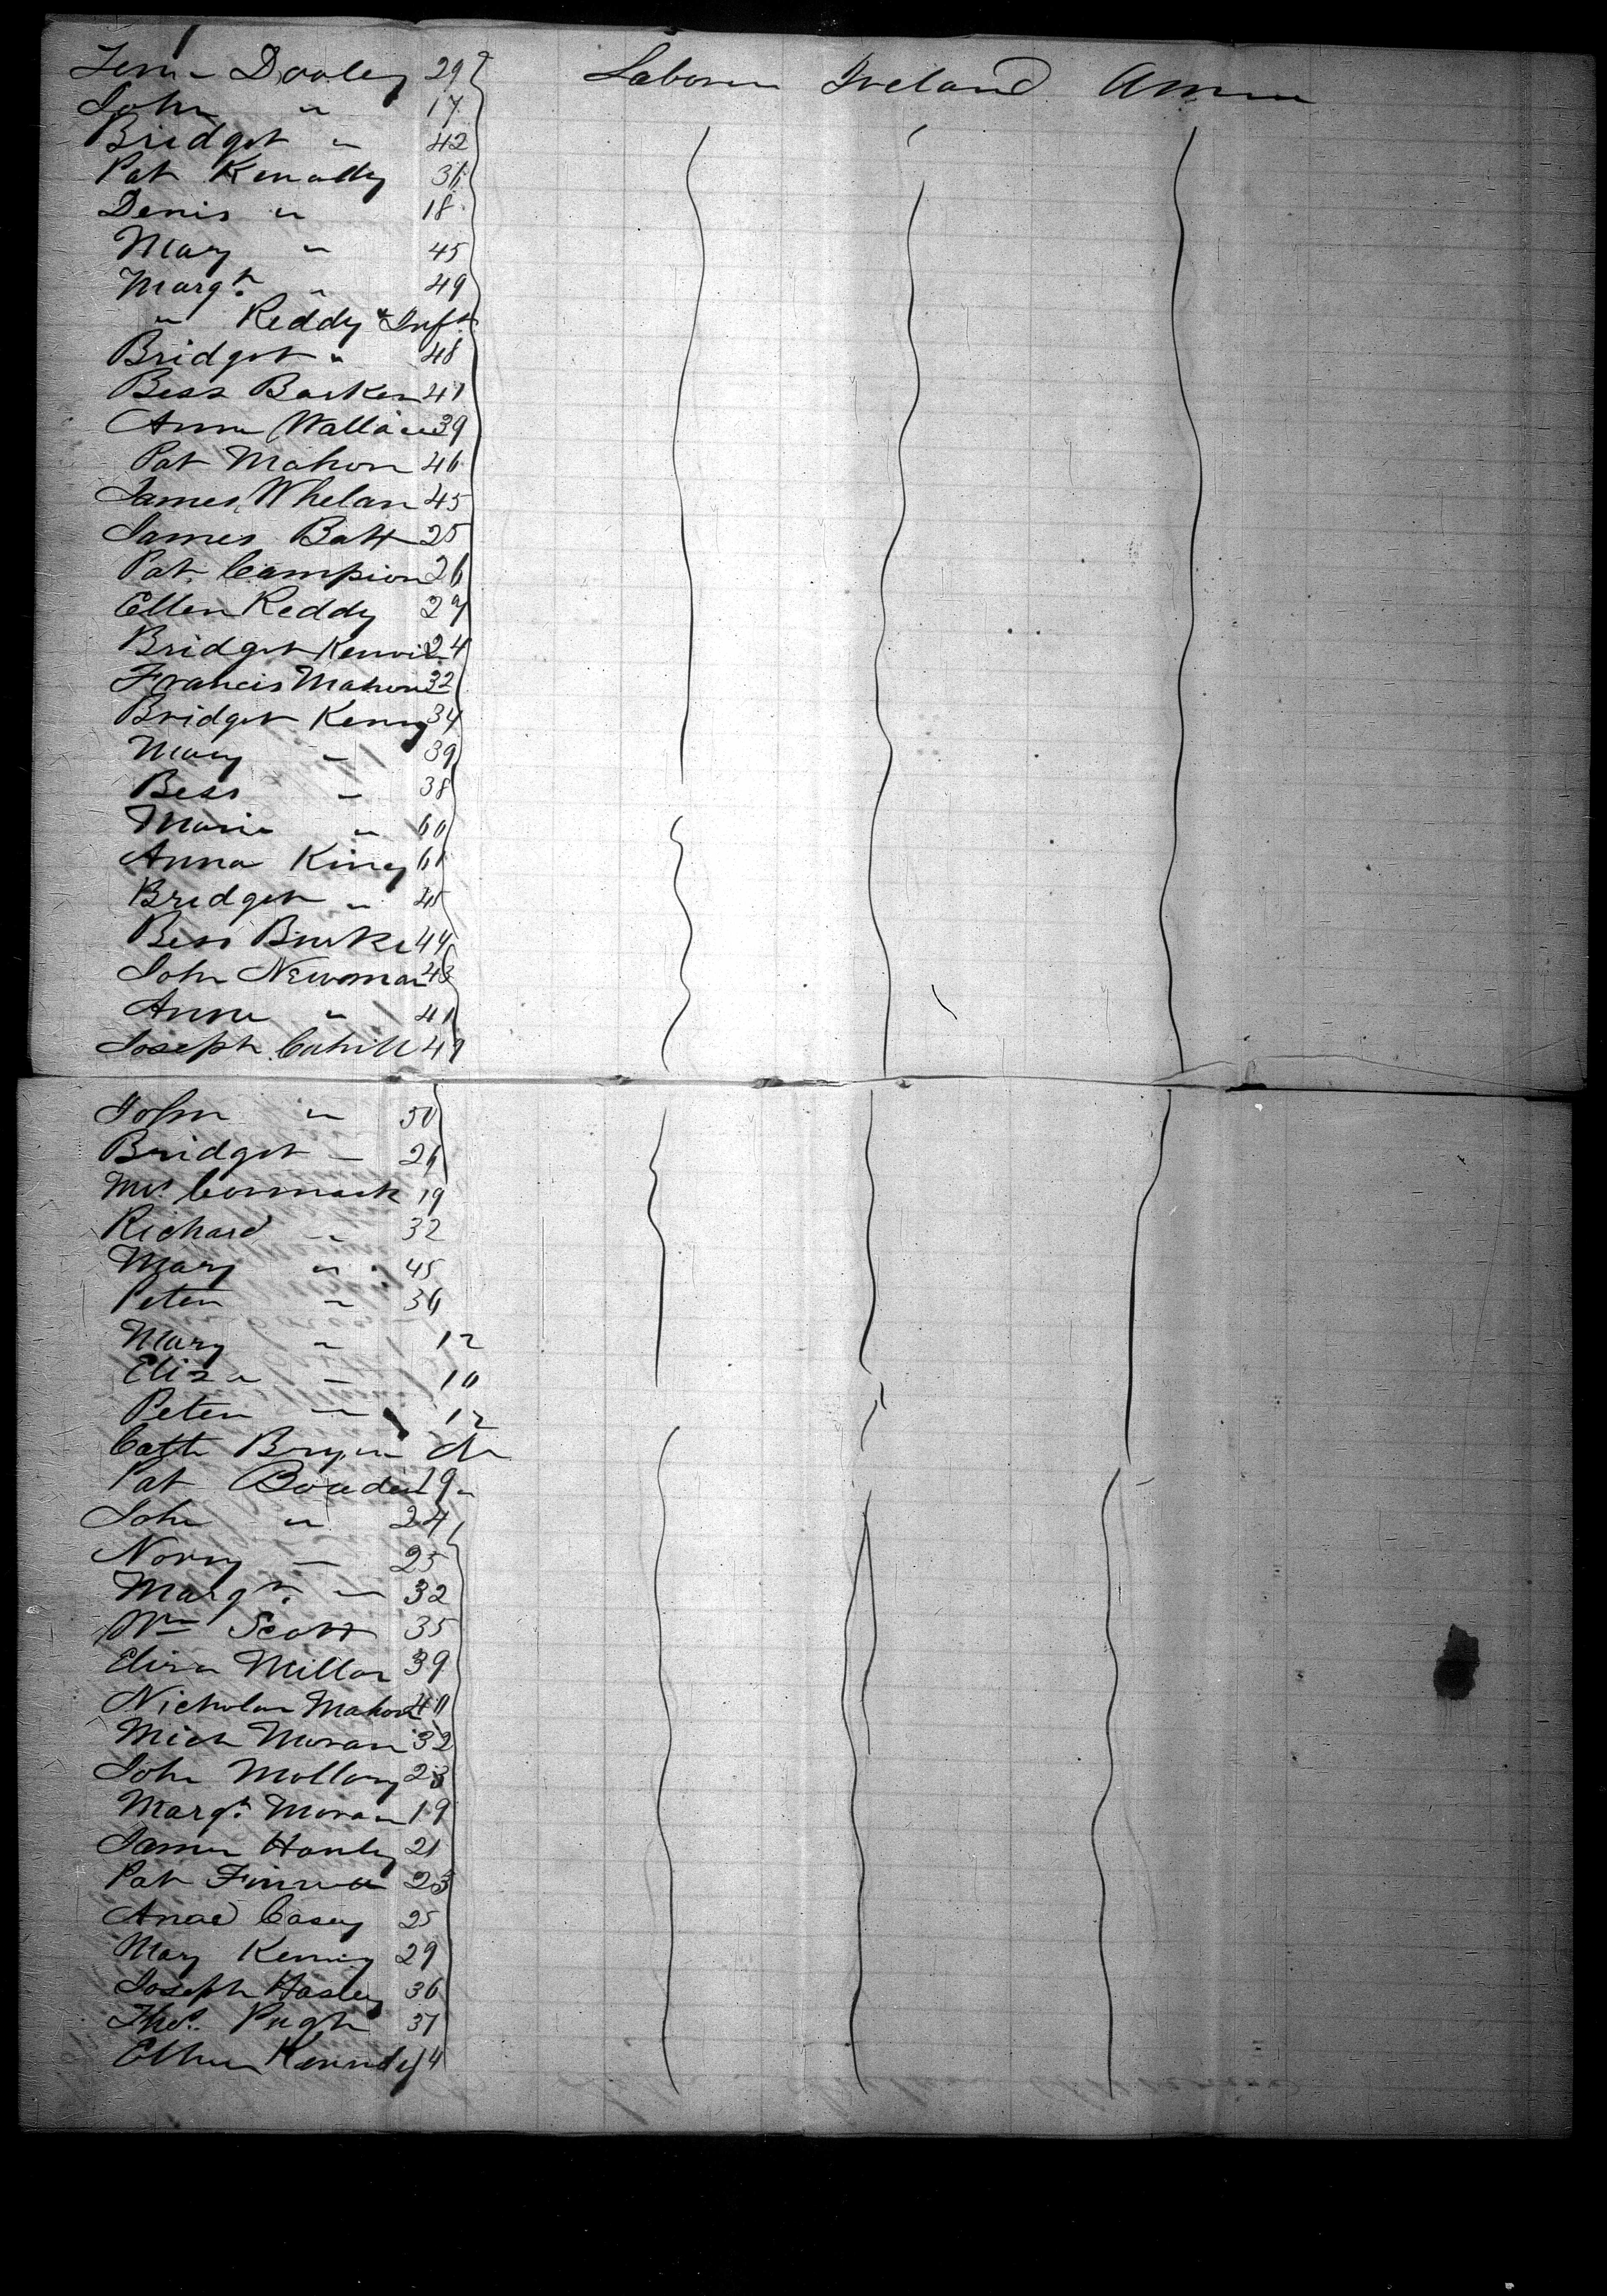 Dooley 29 Laborer Ireland Amer
John " 17
Bridget " 42
Pat Kenady 36
Denis " 18
Mary " 45
Margt. " 49
" Reddy Inft
Bridget " 48
Bess Barker 41
Anne Wallace 39
Pat Mahon 46
James Whelan 45
James Batt 25
Pat Campion 26
Ellen Reddy 27
Bridget 24
Francis Mahon 32
Bridget Kenny 34
Mary " 39
Bess " 38
Maria " 60
Anna King 61
Bridget " 45
Bess Burke 44
John Newman 43
Anne " 41
Joseph Cahill 49
John " 50
Bridget " 26
Cormack 19
Richard " 32
Mary " 45
Peter " 36
Mary " 12
Eliza " 10
Peter " 12
Cath
Pat 19
John " 24
Norry " 25
Margt. " 32
Wm Scott 35
Eliza Millar 39
Nicholas Mahon 40
Mich Moran 32
John Mollony 23
Margt. Moran 19
James Hanley 21
Pat 23
Casey 25
Mary 29
Joseph 36
Thos. Pugh 37
Kennedy